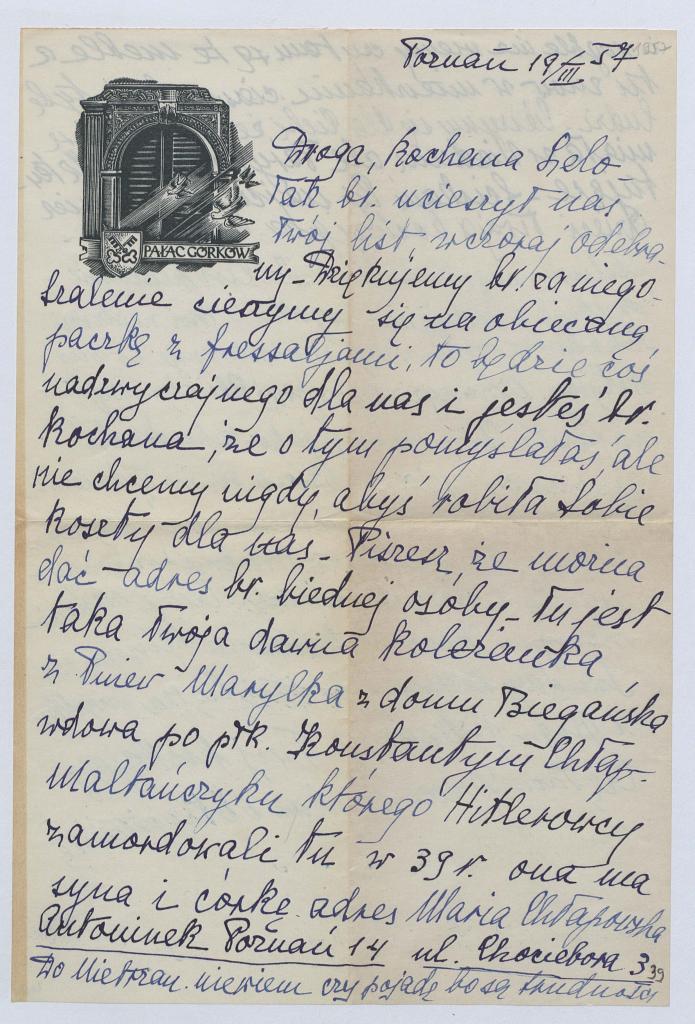 1957
Poznań 19/III 57
PAŁAC GÓRKÓW
Droga, kochana Lelo-
tak br. ucieszył nas
Twój list wczoraj odebra-
ny - Dziękujemy br. za niego -
szalenie cieszymy się na obiecaną
paczkę z fressaljami, to będzie coś
nadzwyczajnego dla nas i jesteś br.
kochana, że o tym pomyślałaś, ale
nie chcemy nigdy, abyś robiła sobie
koszty dla nas - Piszesz, że można
dać adres br. biednej osoby - tu jest
taka Twoja dawna koleżanka
z Pniew Marylka z domu Biegańska
wdowa po płk. Konstantym Chłap.
Maltańczyku którego Hitlerowcy
zamordowali tu w 39 r. ona ma
syna i córkę adres Maria Chłapowska
Antoninek Poznań 14 ul. Chociebora 3
39
Do Niemczan. niewiem czy pojadę bo są trudności